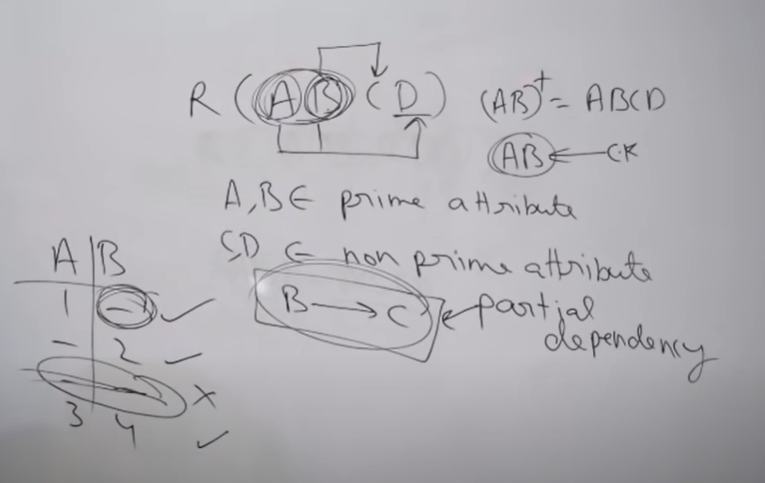 R (A B C D) (AB)+ = ABCD
AB ← CK
A, B ∈ prime attribute
C, D ∈ non prime attribute
B → C ← partial dependency
A | B
1 | – ✓
– | 2 ✓
– | – ×
3 | 4 ✓